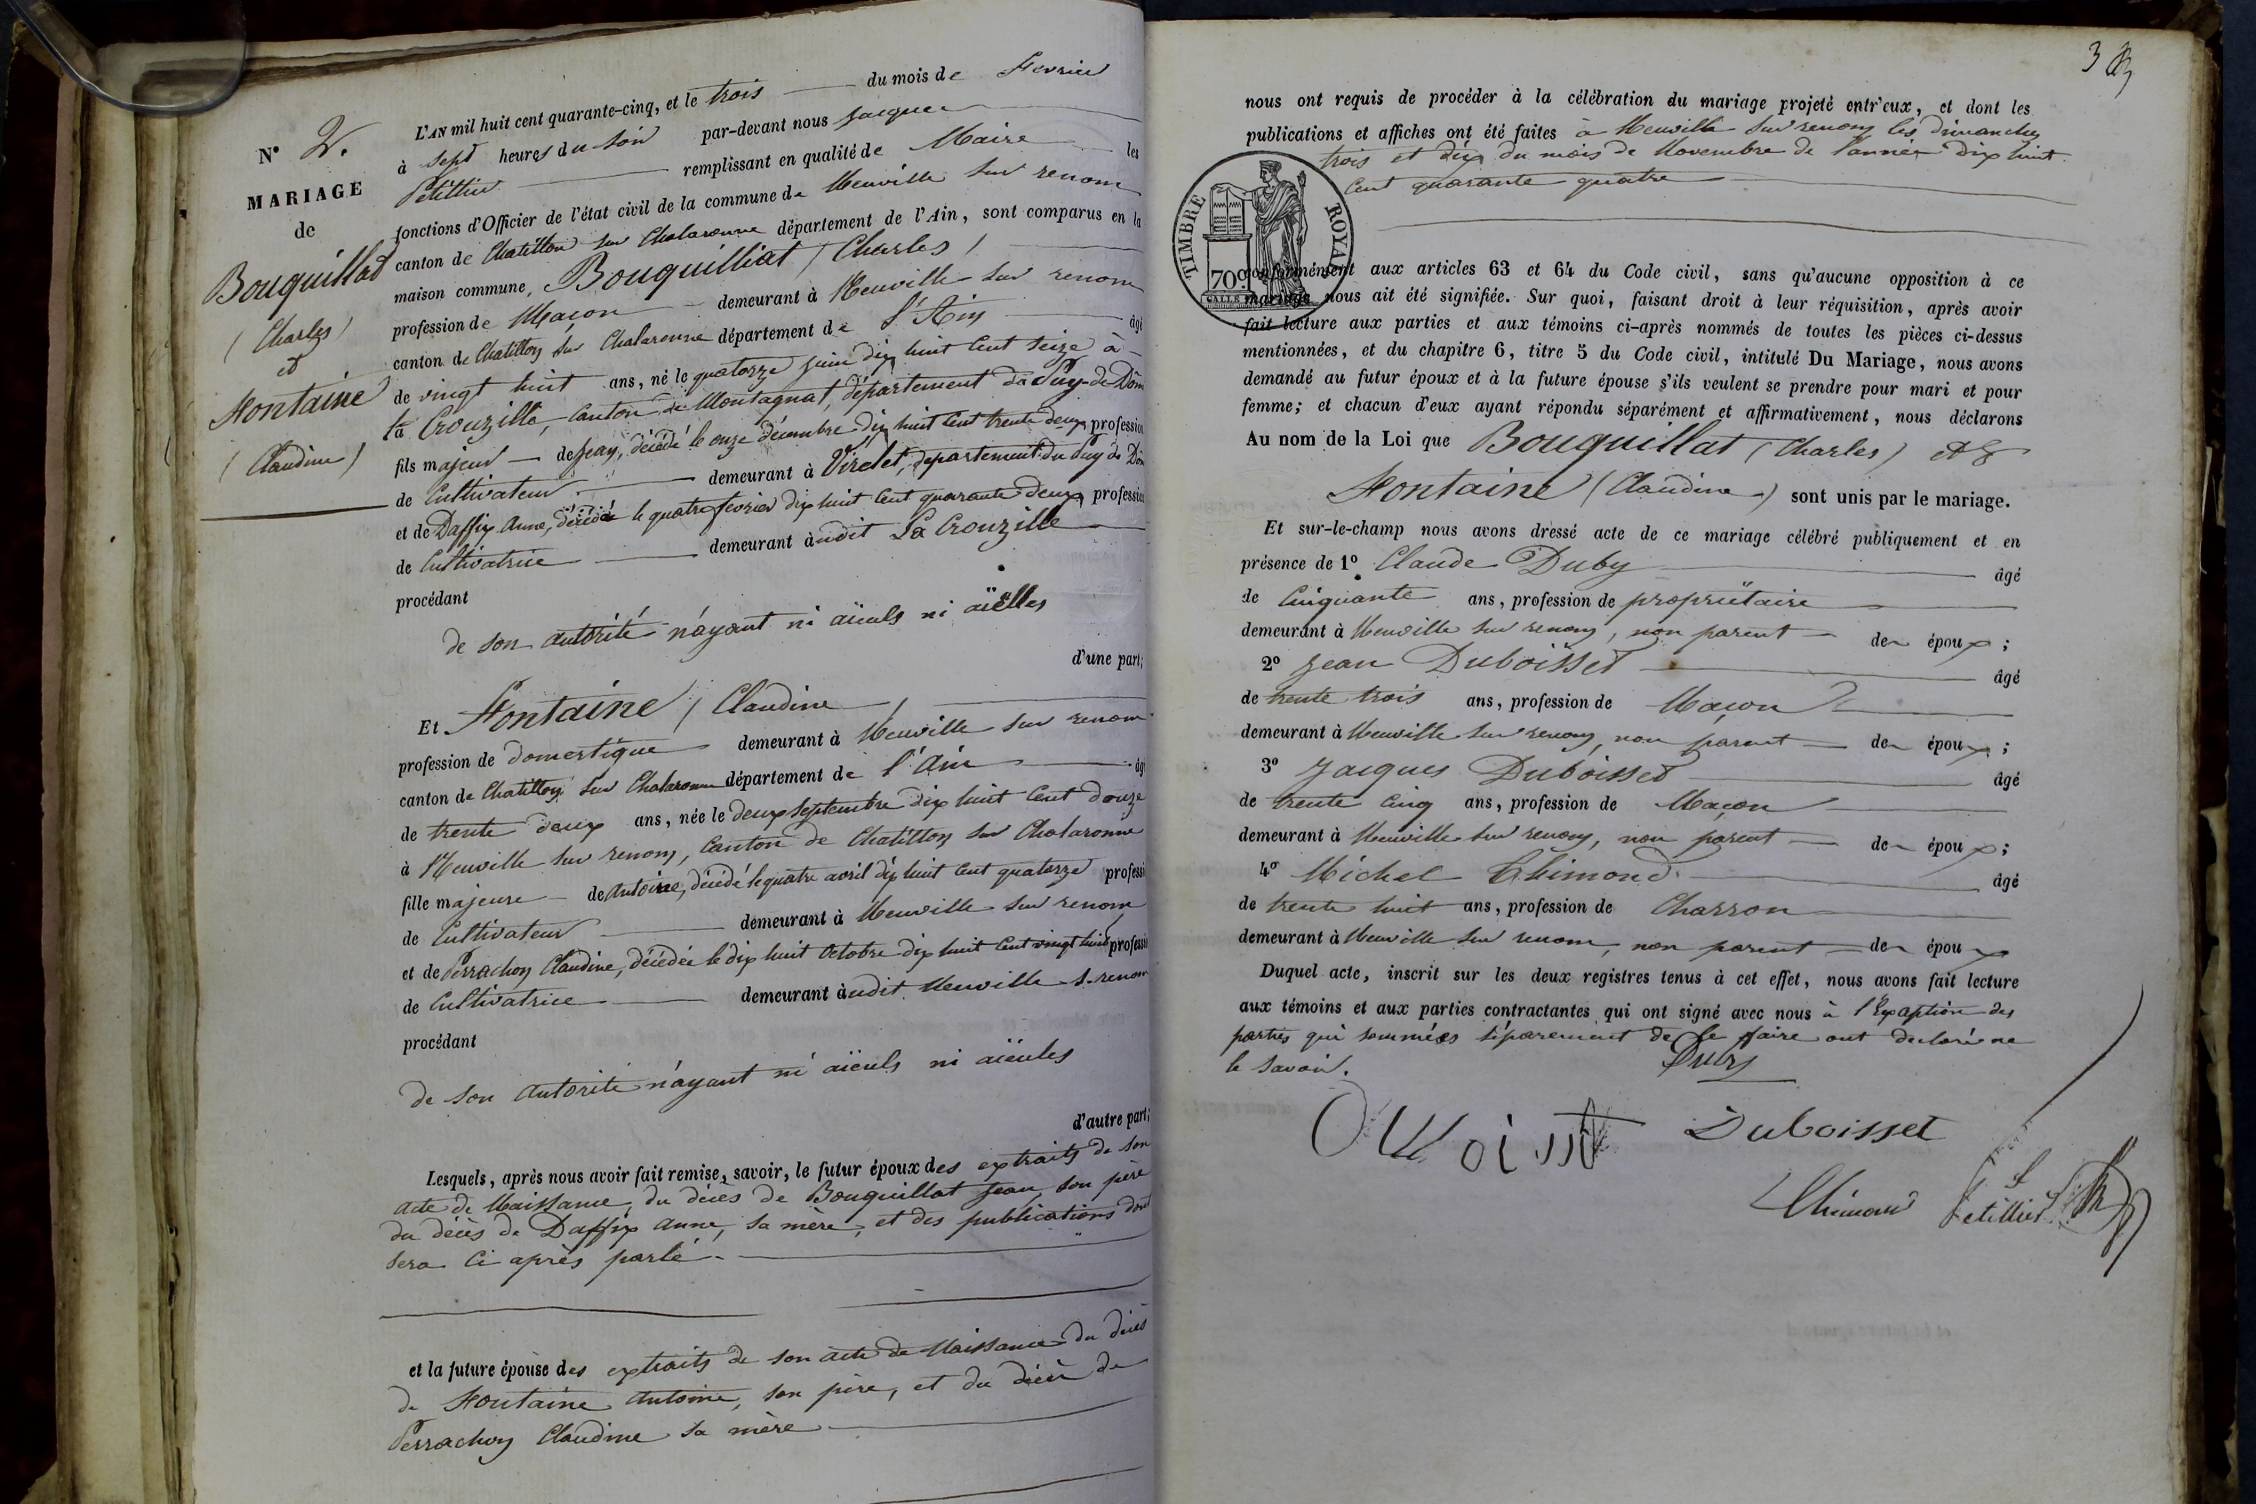 N° 2.
MARIAGE
de
Bouquillat
(Charles)
et
Fontaine
(Claudine)
L'AN mil huit cent quarante-cinq, et le trois du mois de Fevrier
à sept heures du soir par-devant nous Jacques
Petillier remplissant en qualité de Maire les
fonctions d'Officier de l'état civil de la commune de Neuville sur renom
canton de Chatillon sur Chalaronne département de l'Ain, sont comparus en la
maison commune, Bouquilliat (Charles)
profession de Maçon demeurant à Neuville sur renom
canton de Chatillon sur Chalaronne département de l'Ain âgé
de vingt huit ans, né le quatorze juin dix huit cent seize à
la Crouzille, canton de Montagnat, département du Puy-de-Dôme
fils majeur de Jean, décédé le onze décembre dix huit cent trente deux profession
de Cultivateur demeurant à Virelet, département du Puy de Dôm
et de Daffix Anne, décédé le quatre fevrier dix huit cent quarante deux profession
de Cultivatrice demeurant àudit La Crouzille
procédant
de son autorité n'ayant ni aïeuls ni aïelles
d'une part;
Et Fontaine (Claudine)
profession de domestique demeurant à Neuville sur renom
canton de Chatillon sur Chalaronne département de l'Ain âgé
de trente deux ans, née le deux septembre dix huit cent douze
à Neuville sur renom, canton de Chatillon sur Chalaronne
fille majeure de Antoine, décédé le quatre avril dix huit cent quatorze professi
de Cultivateur demeurant à Neuville sur renom
et de Perrachon Claudine, décédée le dix huit Octobre dix huit cent vingt huit professi
de Cultivatrice demeurant àudit Neuville s. renom
procédant
de son autorité n'ayant ni aïeuls ni aïeules
d'autre part;
Lesquels, après nous avoir fait remise, savoir, le futur époux des extraits de son
acte de Naissance, du décès de Bouquillat Jean, son père
du décès de Daffix Anne, sa mère, et des publications dont
sera ci après parlé.
et la future épouse des extraits de son acte de Naissance du décès
de Fontaine Antoine, son père, et du décès de
Perrachon Claudine sa mère
3
nous ont requis de procéder à la célébration du mariage projeté entr'eux, et dont les
publications et affiches ont été faites à Neuville sur renom les dimanches
trois et dix du mois de Novembre de l'année dix huit
cent quarante quatre
TIMBRE ROYAL
70c.
conformément aux articles 63 et 64 du Code civil, sans qu'aucune opposition à ce
mariage nous ait été signifiée. Sur quoi, faisant droit à leur réquisition, après avoir
fait lecture aux parties et aux témoins ci-après nommés de toutes les pièces ci-dessus
mentionnées, et du chapitre 6, titre 5 du Code civil, intitulé Du Mariage, nous avons
demandé au futur époux et à la future épouse s'ils veulent se prendre pour mari et pour
femme; et chacun d'eux ayant répondu séparément et affirmativement, nous déclarons
Au nom de la Loi que Bouquillat (Charles) et
Fontaine (Claudine) sont unis par le mariage.
Et sur-le-champ nous avons dressé acte de ce mariage célébré publiquement et en
présence de 1° Claude Duby âgé
de Cinquante ans, profession de propriétaire
demeurant à Neuville sur renom, non parent des époux;
2° Jean Duboisset âgé
de trente trois ans, profession de Maçon
demeurant à Neuville sur renom, non parent des époux;
3° Jacques Duboisset âgé
de trente cinq ans, profession de Maçon
demeurant à Neuville sur renom, non parent des époux;
4° Michel Chimond âgé
de trente huit ans, profession de Charron
demeurant à Neuville sur renom, non parent des époux
Duquel acte, inscrit sur les deux registres tenus à cet effet, nous avons fait lecture
aux témoins et aux parties contractantes qui ont signé avec nous à l'Exaption des
parties qui sommées séparement de le faire ont declaré ne
le savoir.
Duboisset
Petillier